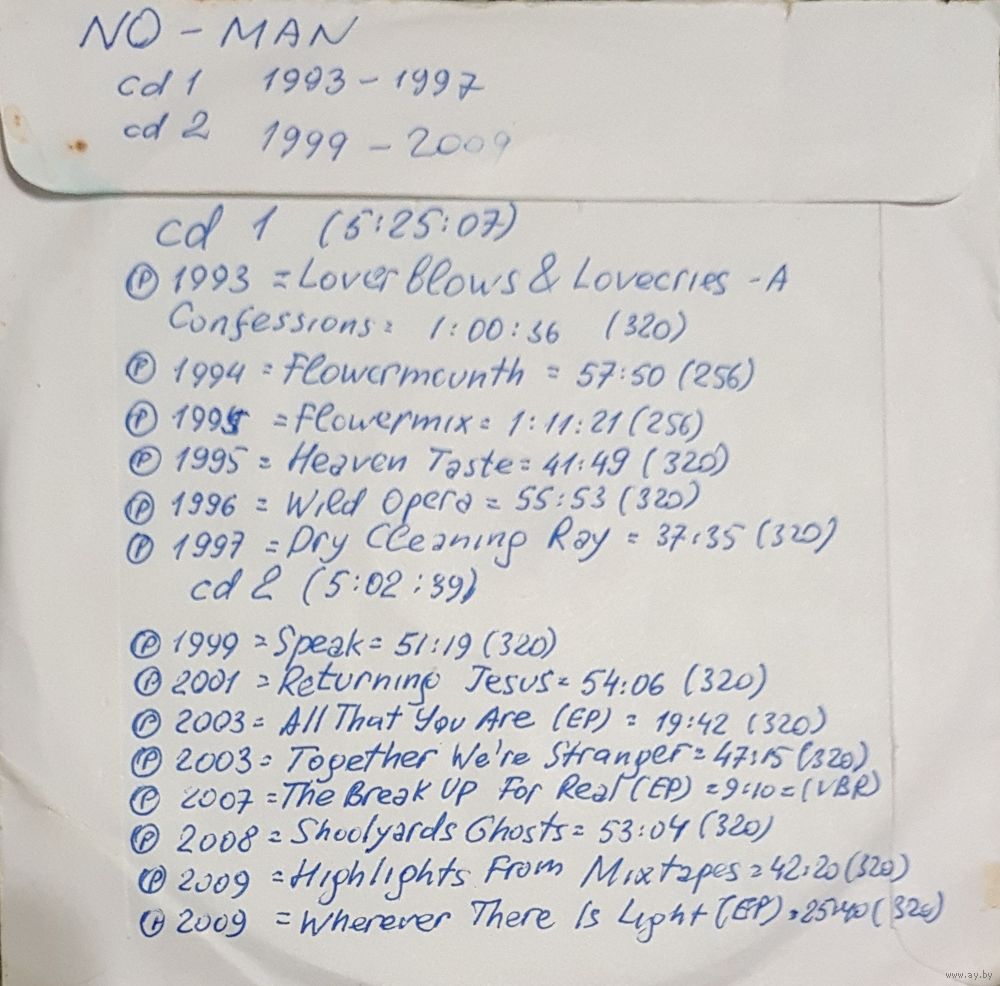 NO - MAN
cd 1 1993 - 1997
cd 2 1999 - 2009
cd 1 (5:25:07)
Ⓟ 1993 = Lover Blows & Lovecries - A
Confessions = 1:00:36 (320)
Ⓟ 1994 = Flowermounth = 57:50 (256)
Ⓟ 1995 = Flowermix = 1:11:21 (256)
Ⓟ 1995 = Heaven Taste = 41:49 (320)
Ⓟ 1996 = Wild Opera = 55:53 (320)
Ⓟ 1997 = Dry Cleaning Ray = 37:35 (320)
cd 2 (5:02:39)
Ⓟ 1999 = Speak = 51:19 (320)
Ⓟ 2001 = Returning Jesus = 54:06 (320)
Ⓟ 2003 = All That You Are (EP) = 19:42 (320)
Ⓟ 2003 = Together We're Stranger = 47:15 (320)
Ⓟ 2007 = The Break Up For Real (EP) = 9:10 = (VBR)
Ⓟ 2008 = Shoolyards Ghosts = 53:04 (320)
Ⓟ 2009 = Highlights From Mixtapes = 42:20 (320)
Ⓟ 2009 = Wherever There Is Light (EP) = 25:40 (320)
www.ay.by